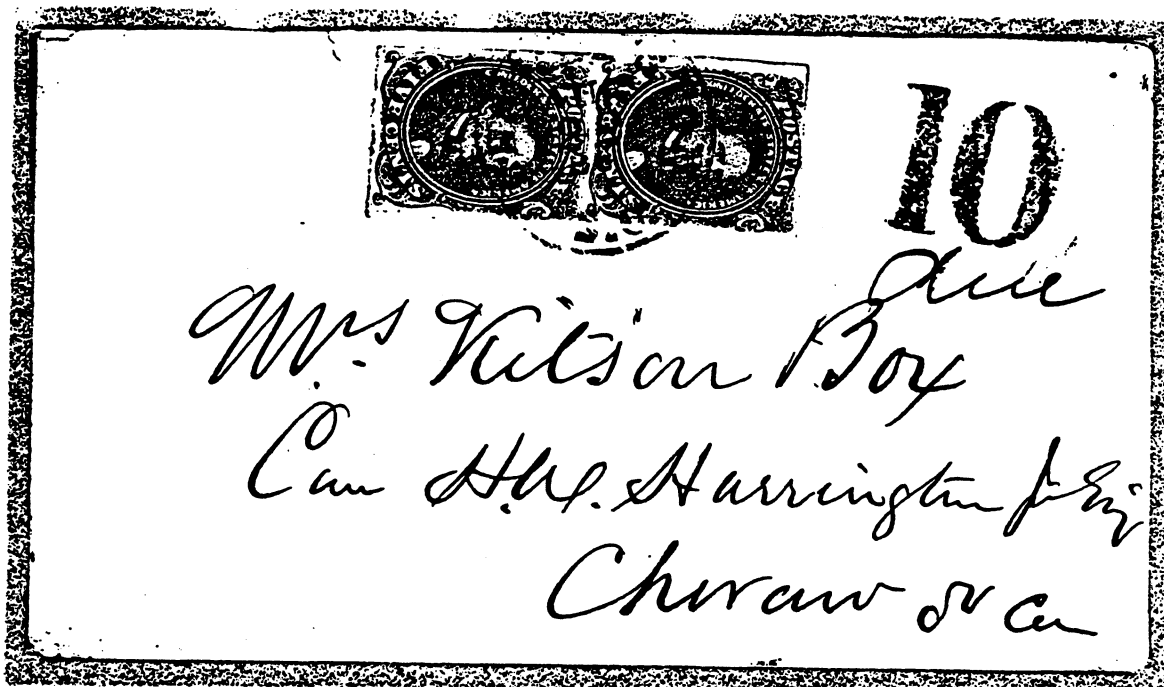 POSTAGE
10
due
Mrs. Kitson Box
Care H.W. Harrington Jr Esq
Cheraw So Ca